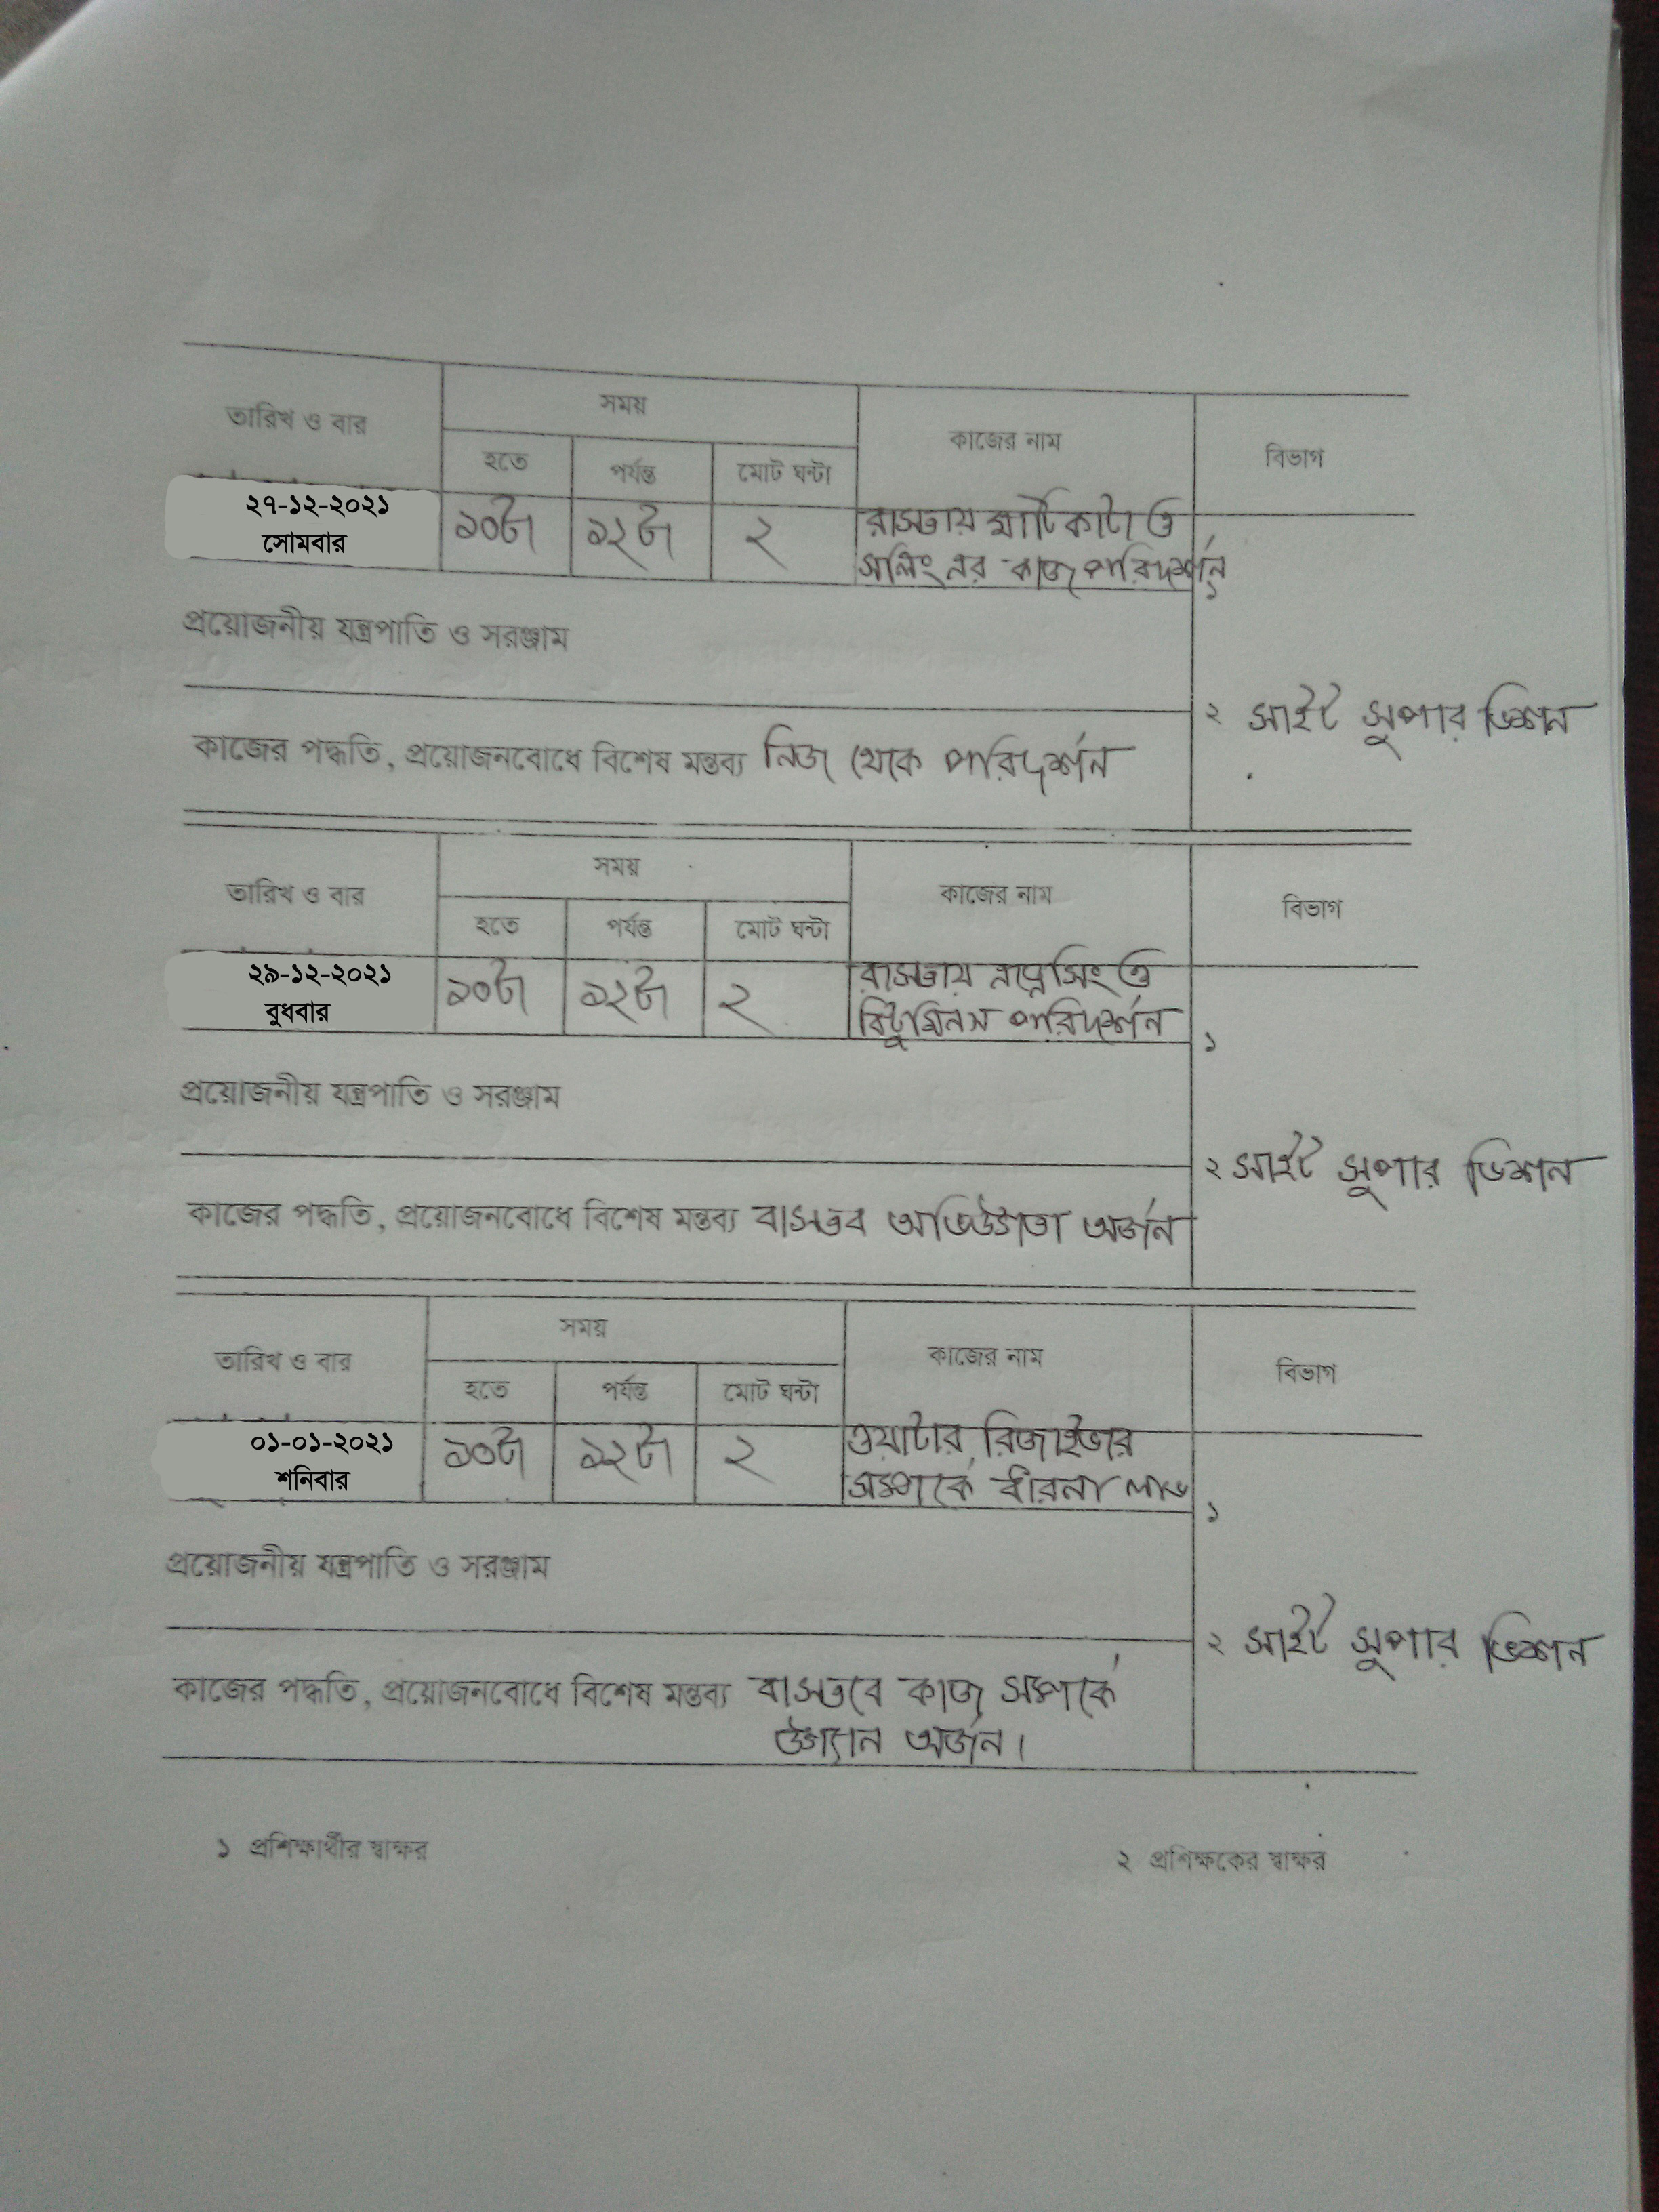 তারিখ ও বার সময় কাজের নাম বিভাগ
হতে পর্যন্ত মোট ঘন্টা
২৭-১২-২০২১
সোমবার
১০টা ১২টা ২
রাস্তায় মাটি কাটা ও
সলিং এর কাজ পরিদর্শন
১
প্রয়োজনীয় যন্ত্রপাতি ও সরঞ্জাম
২ সাইট সুপার ভিশন
কাজের পদ্ধতি, প্রয়োজনবোধে বিশেষ মন্তব্য নিজ থেকে পরিদর্শন
তারিখ ও বার সময় কাজের নাম বিভাগ
হতে পর্যন্ত মোট ঘন্টা
২৯-১২-২০২১
বুধবার
১০টা ১২টা ২
রাস্তায় ও
বিটুমিনস পরিদর্শন
১
প্রয়োজনীয় যন্ত্রপাতি ও সরঞ্জাম
২ সাইট সুপার ভিশন
কাজের পদ্ধতি, প্রয়োজনবোধে বিশেষ মন্তব্য বাস্তব অর্জন
তারিখ ও বার সময় কাজের নাম বিভাগ
হতে পর্যন্ত মোট ঘন্টা
০১-০১-২০২১
শনিবার
১০টা ১২টা ২
ওয়াটার রিজাইভার
সম্পর্কে ধারনা লাভ
১
প্রয়োজনীয় যন্ত্রপাতি ও সরঞ্জাম
২ সাইট সুপার ভিশন
কাজের পদ্ধতি, প্রয়োজনবোধে বিশেষ মন্তব্য বাস্তবে কাজ সম্পর্কে
অর্জন।
১ প্রশিক্ষার্থীর স্বাক্ষর ২ প্রশিক্ষকের স্বাক্ষর